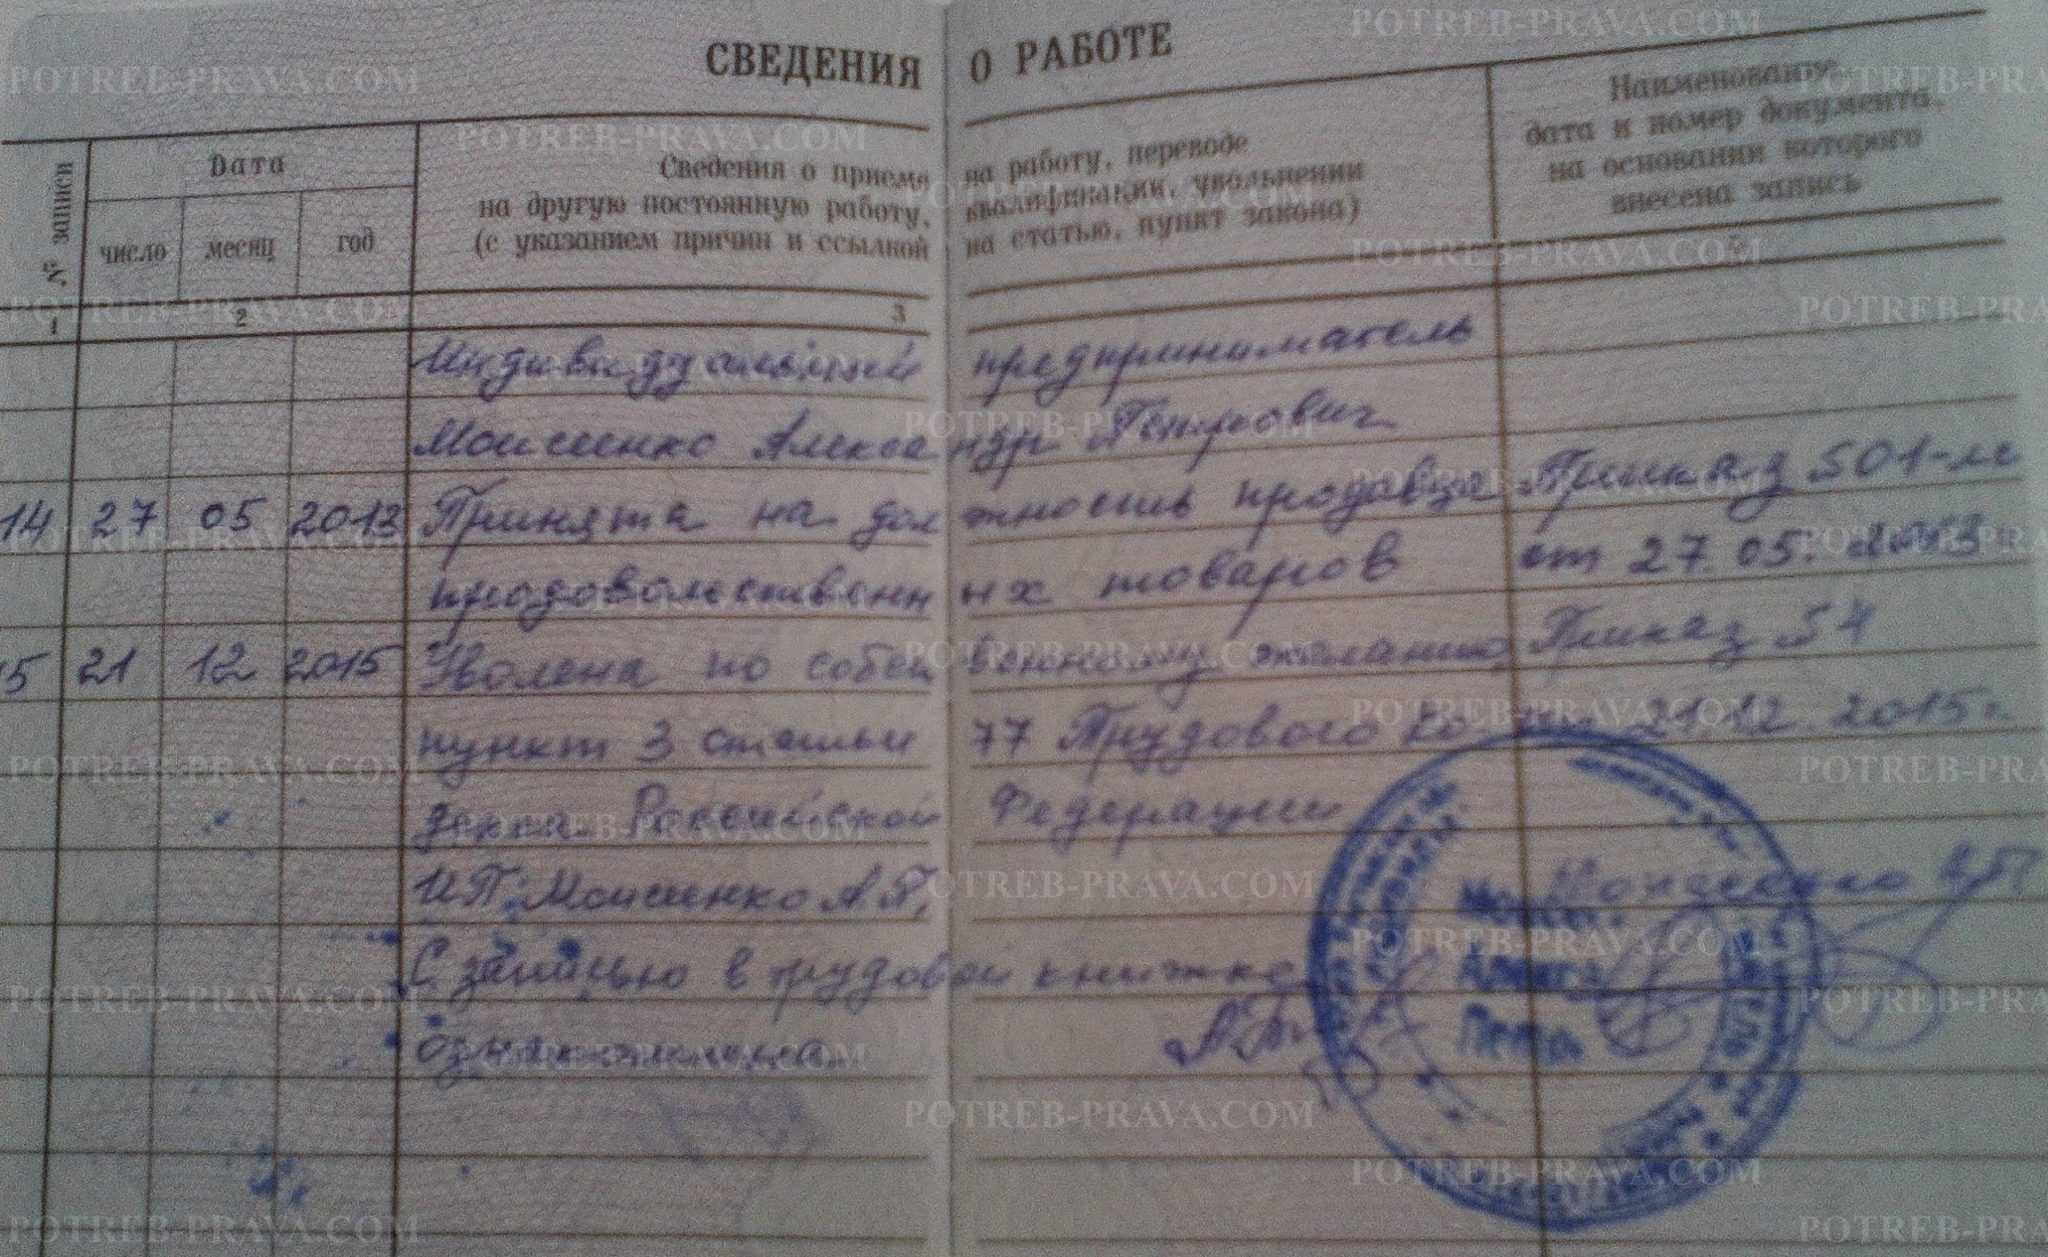 СВЕДЕНИЯ О РАБОТЕ
№ записи
Дата
число месяц год
Сведения о приеме на работу, переводе
на другую постоянную работу, квалификации, увольнении
(с указанием причин и ссылкой на статью, пункт закона)
Наименование,
дата и номер документа,
на основании которого
внесена запись
1 2 3
Индивидуальный предприниматель
Моисеенко Александр Петрович
14 27 05 2013 Принята на должность продавца Приказ 501-лс
продовольственных товаров от 27.05.2013
15 21 12 2015 Уволена по собственному желанию, Приказ 54
пункт 3 статьи 77 Трудового ко- 21.12.2015г.
декса Российской Федерации
ИП Моисеенко А.П.
С записью в трудовой книжке
ознакомлена
POTREB-PRAVA.COM